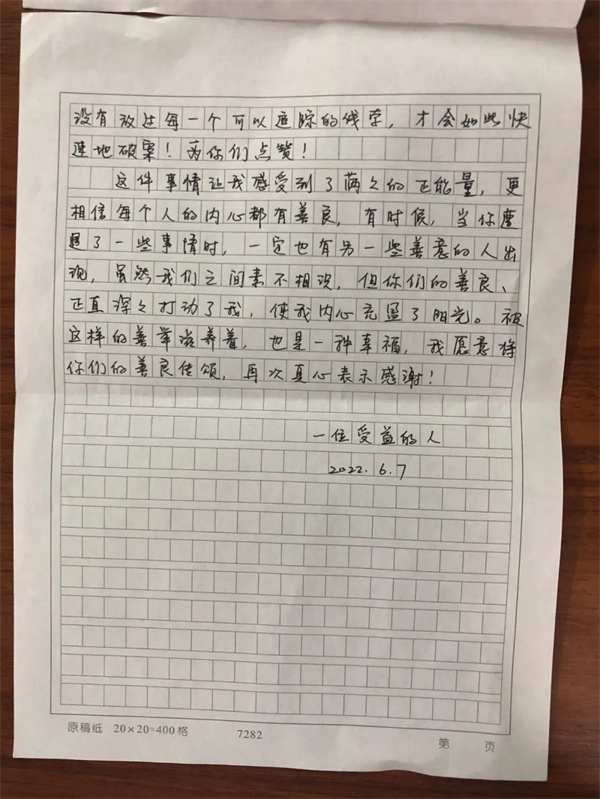 没有放过每一个可以追踪的线索，才会如此快
速地破案！为你们点赞！
这件事情让我感受到了满之的正能量，更
相信每个人的内心都有善良，有时候，当你摩
了一些事情时，一定也有另一些善意的人出
现，虽然我们之间素不相识，但你们的善良、
正直深之打动了我，使我内心充盈了阳光。被
这样的善举滋养着，也是一种幸福，我愿意将
你们的善良传颂，再次真心表示感谢！
一位受益的人
2022.6.7
原稿纸 20×20=400格
7282
第 页